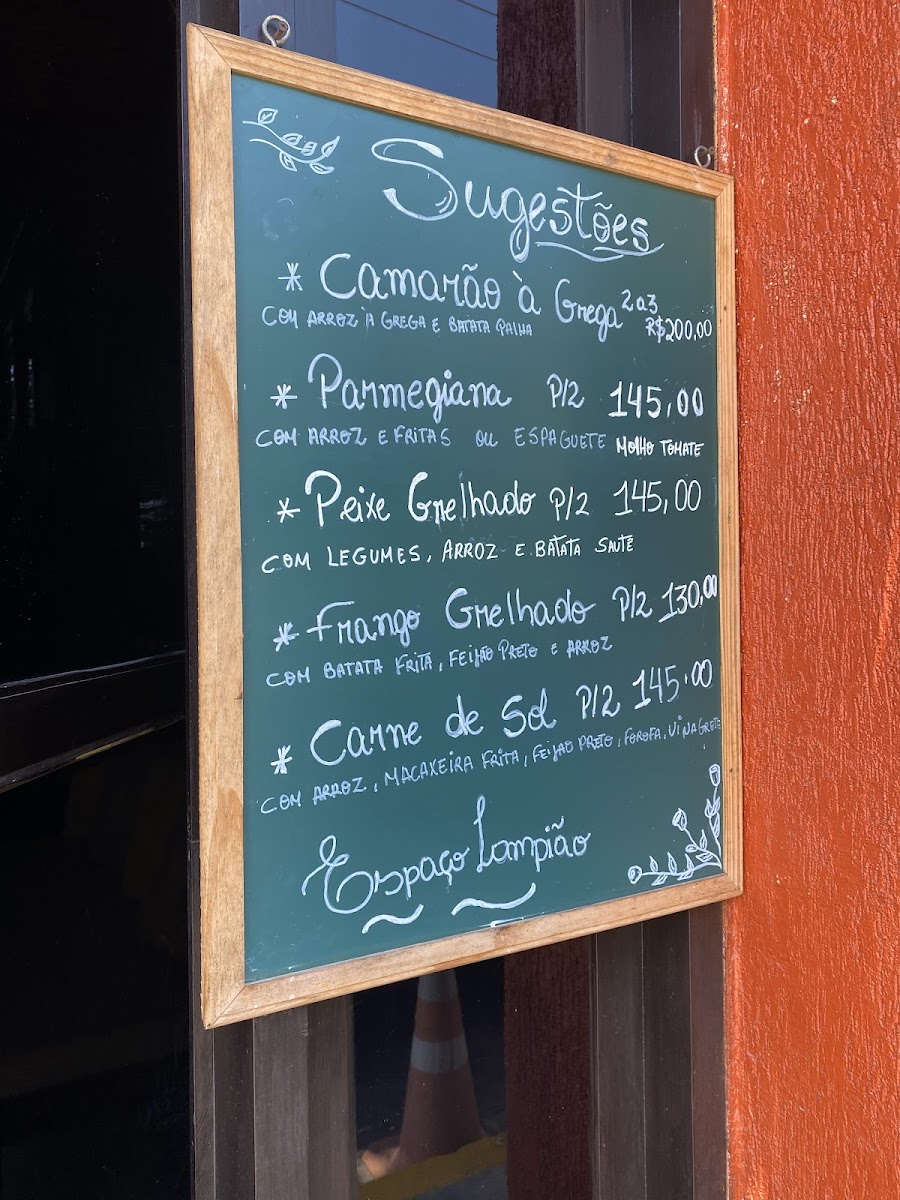 Sugestões
* Camarão à Grega 2 a 3
COM ARROZ À GREGA E BATATA PALHA R$200,00
* Parmegiana P/2 145,00
COM ARROZ E FRITAS OU ESPAGUETE MOLHO TOMATE
* Peixe Grelhado P/2 145,00
COM LEGUMES, ARROZ E BATATA SAUTÉ
* Frango Grelhado P/2 130,00
COM BATATA FRITA, FEIJÃO PRETO E ARROZ
* Carne de Sol P/2 145.00
COM ARROZ, MACAXEIRA FRITA, FEIJÃO PRETO, FOROFA, VINAGRETE
Espaço Lampião